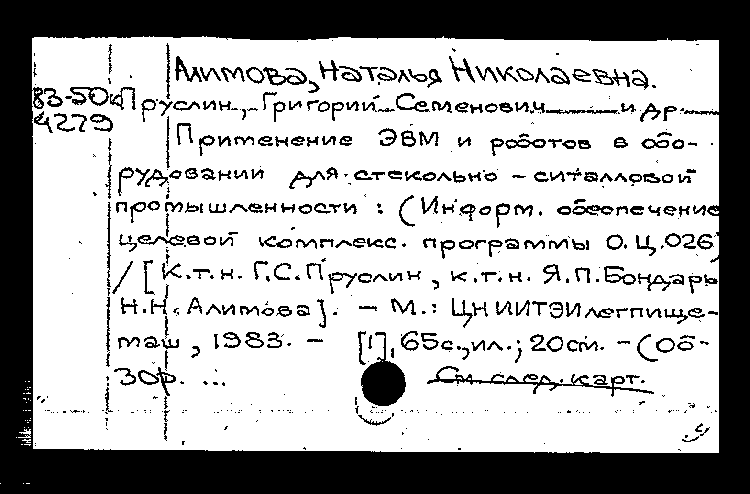 Алимова, Наталья Николаевна.
83-50к Пруслин, Григорий Семенович и др
4279
Применение ЭВМ и роботов в обо-
рудовании для стекольно - ситалловой
промышленности : (Информ. обеспечение
целевой комплекс. программы О.Ц.026)
/ [К.т.н. Г.С.Пруслин, к.т.н. Я.П.Бондарь
Н.Н. Алимова]. - М.: ЦНИИТЭИлегпище-
маш, 1983. - [1], 65с.,ил.; 20см. - (Об-
зор. ...
См. след. карт.